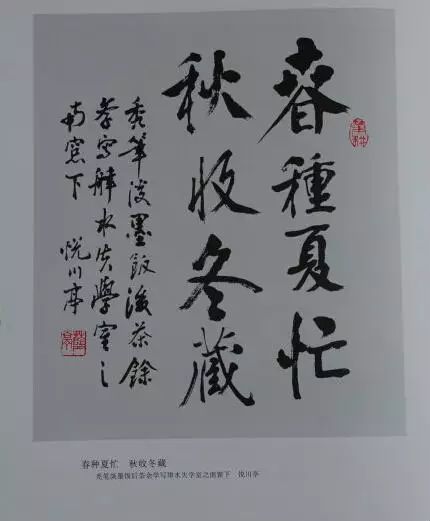 春種夏忙
秋收冬藏
禿筆淡墨飯後茶餘
學寫解水失學室之
南窗下 悅川亭
春种夏忙 秋收冬藏
秃笔淡墨饭后茶余学写 水失学室之南窗下 悦川亭